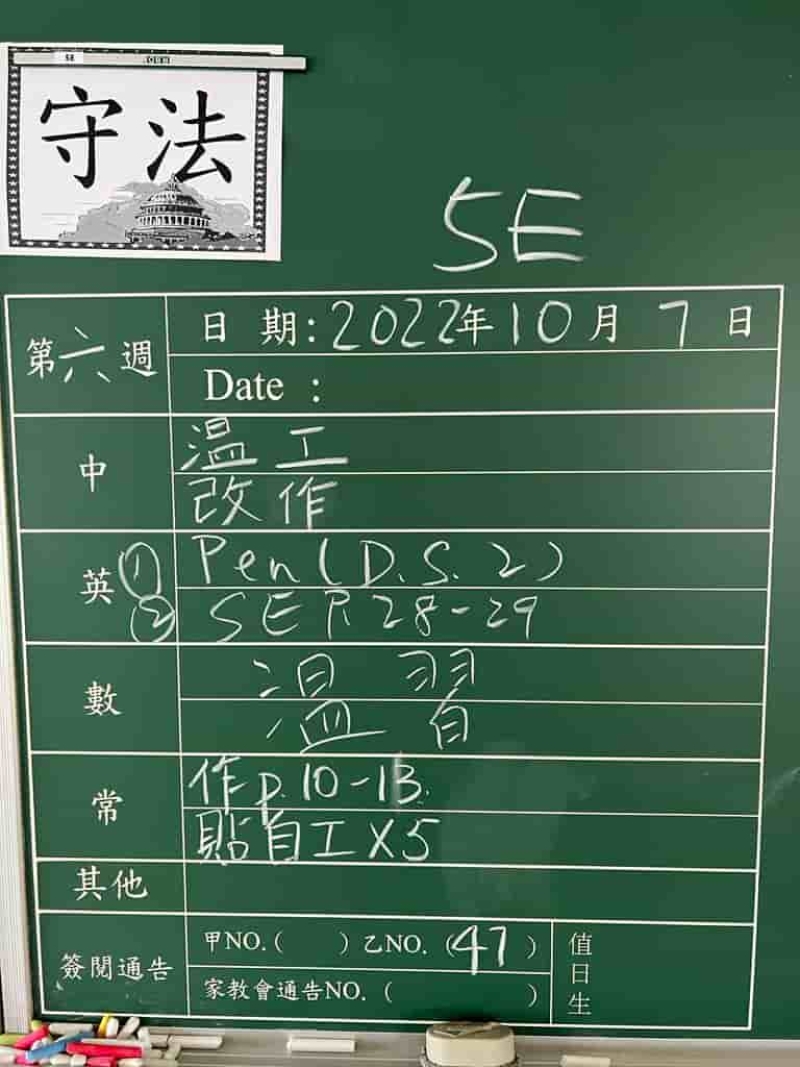 守法
5E
第六週
日 期：2022年10月7日
Date ：
中
温工
改作
英
① Pen (D.S. 2)
② SE P.28-29
數
温習
常
作p.10-13.
貼自工X5
其他
簽閱通告
甲NO.(    )乙NO. (47)
家教會通告NO. (    )
值日生